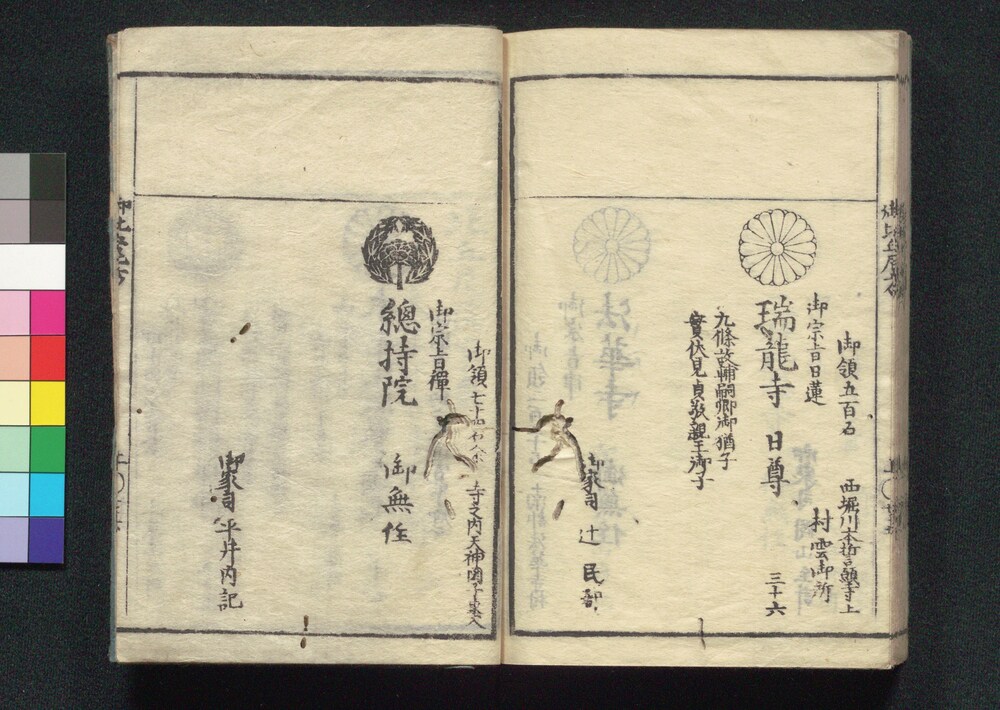 御領五百石
西堀川本誓願寺上
村雲御所
御宗旨日蓮
瑞龍寺 日尊 三十六
九條故輔嗣卿御猶子
實伏見貞敬親王御子
御家司 辻 民部
御領七十四石余
寺之内天神圖子東入
御宗旨禪
總持院 御無住
御家司 平井内記